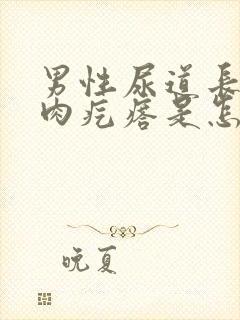 男性尿道長
肉疙瘩是怎
晚夏